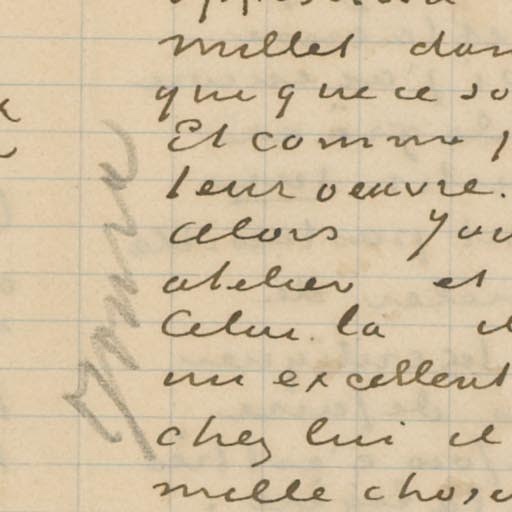 millet dan
que que ce so
Et comme
leur oeuvre.
alors
atelier et
Celui la
un excellent
chez lui il
mille chose